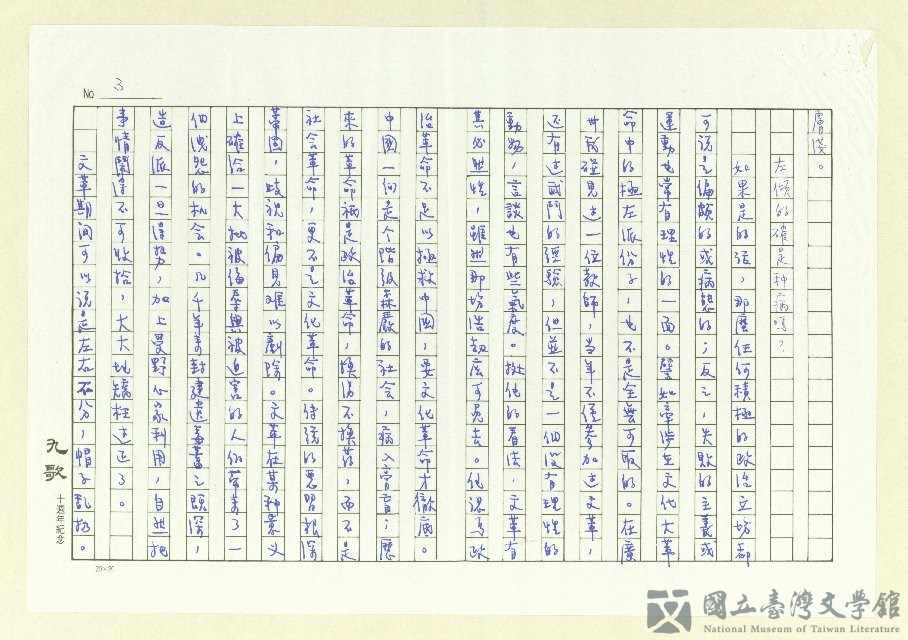 No 3
膚淺。
左傾的確是种病嗎？
如果是的話，那麼任何積極的政治立場都
可說是偏頗的或病態的；反之，失敗的主義或
運動也常有理性的一面。譬如牽涉在文化大革
命中的極左派份子，也不是全無可取的。在廣
州我碰見这一位教師，当年不僅參加过文革，
还有过武鬥的經驗，但並不是一個沒有理性的
動物，言談也有些氣度。據他的看法，文革有
其必然性，雖然那場浩劫应可免去。他認為政
治革命不足以拯救中国，要文化革命才徹底。
中國一向是个階級森嚴的社会，病入膏肓；歷
來的革命祇是政治革命，換湯不換葯，而不是
社会革命，更不是文化革命。传統的惡習根深
蒂固，歧視和偏見难以剷除。文革在某种意义
上確給一大批被侮辱與被迫害的人們帶來了一
個洩怨的机会。几千年來封建遺毒蓄之既深，
造反派一旦得勢，加上受野心家利用，自然把
事情鬧得不可收拾，大大地矯枉过正了。
文革期間可以說是左右不分，帽子乱扔。
九歌 十週年紀念
20×20
國立臺灣文學館
National Museum of Taiwan Literature